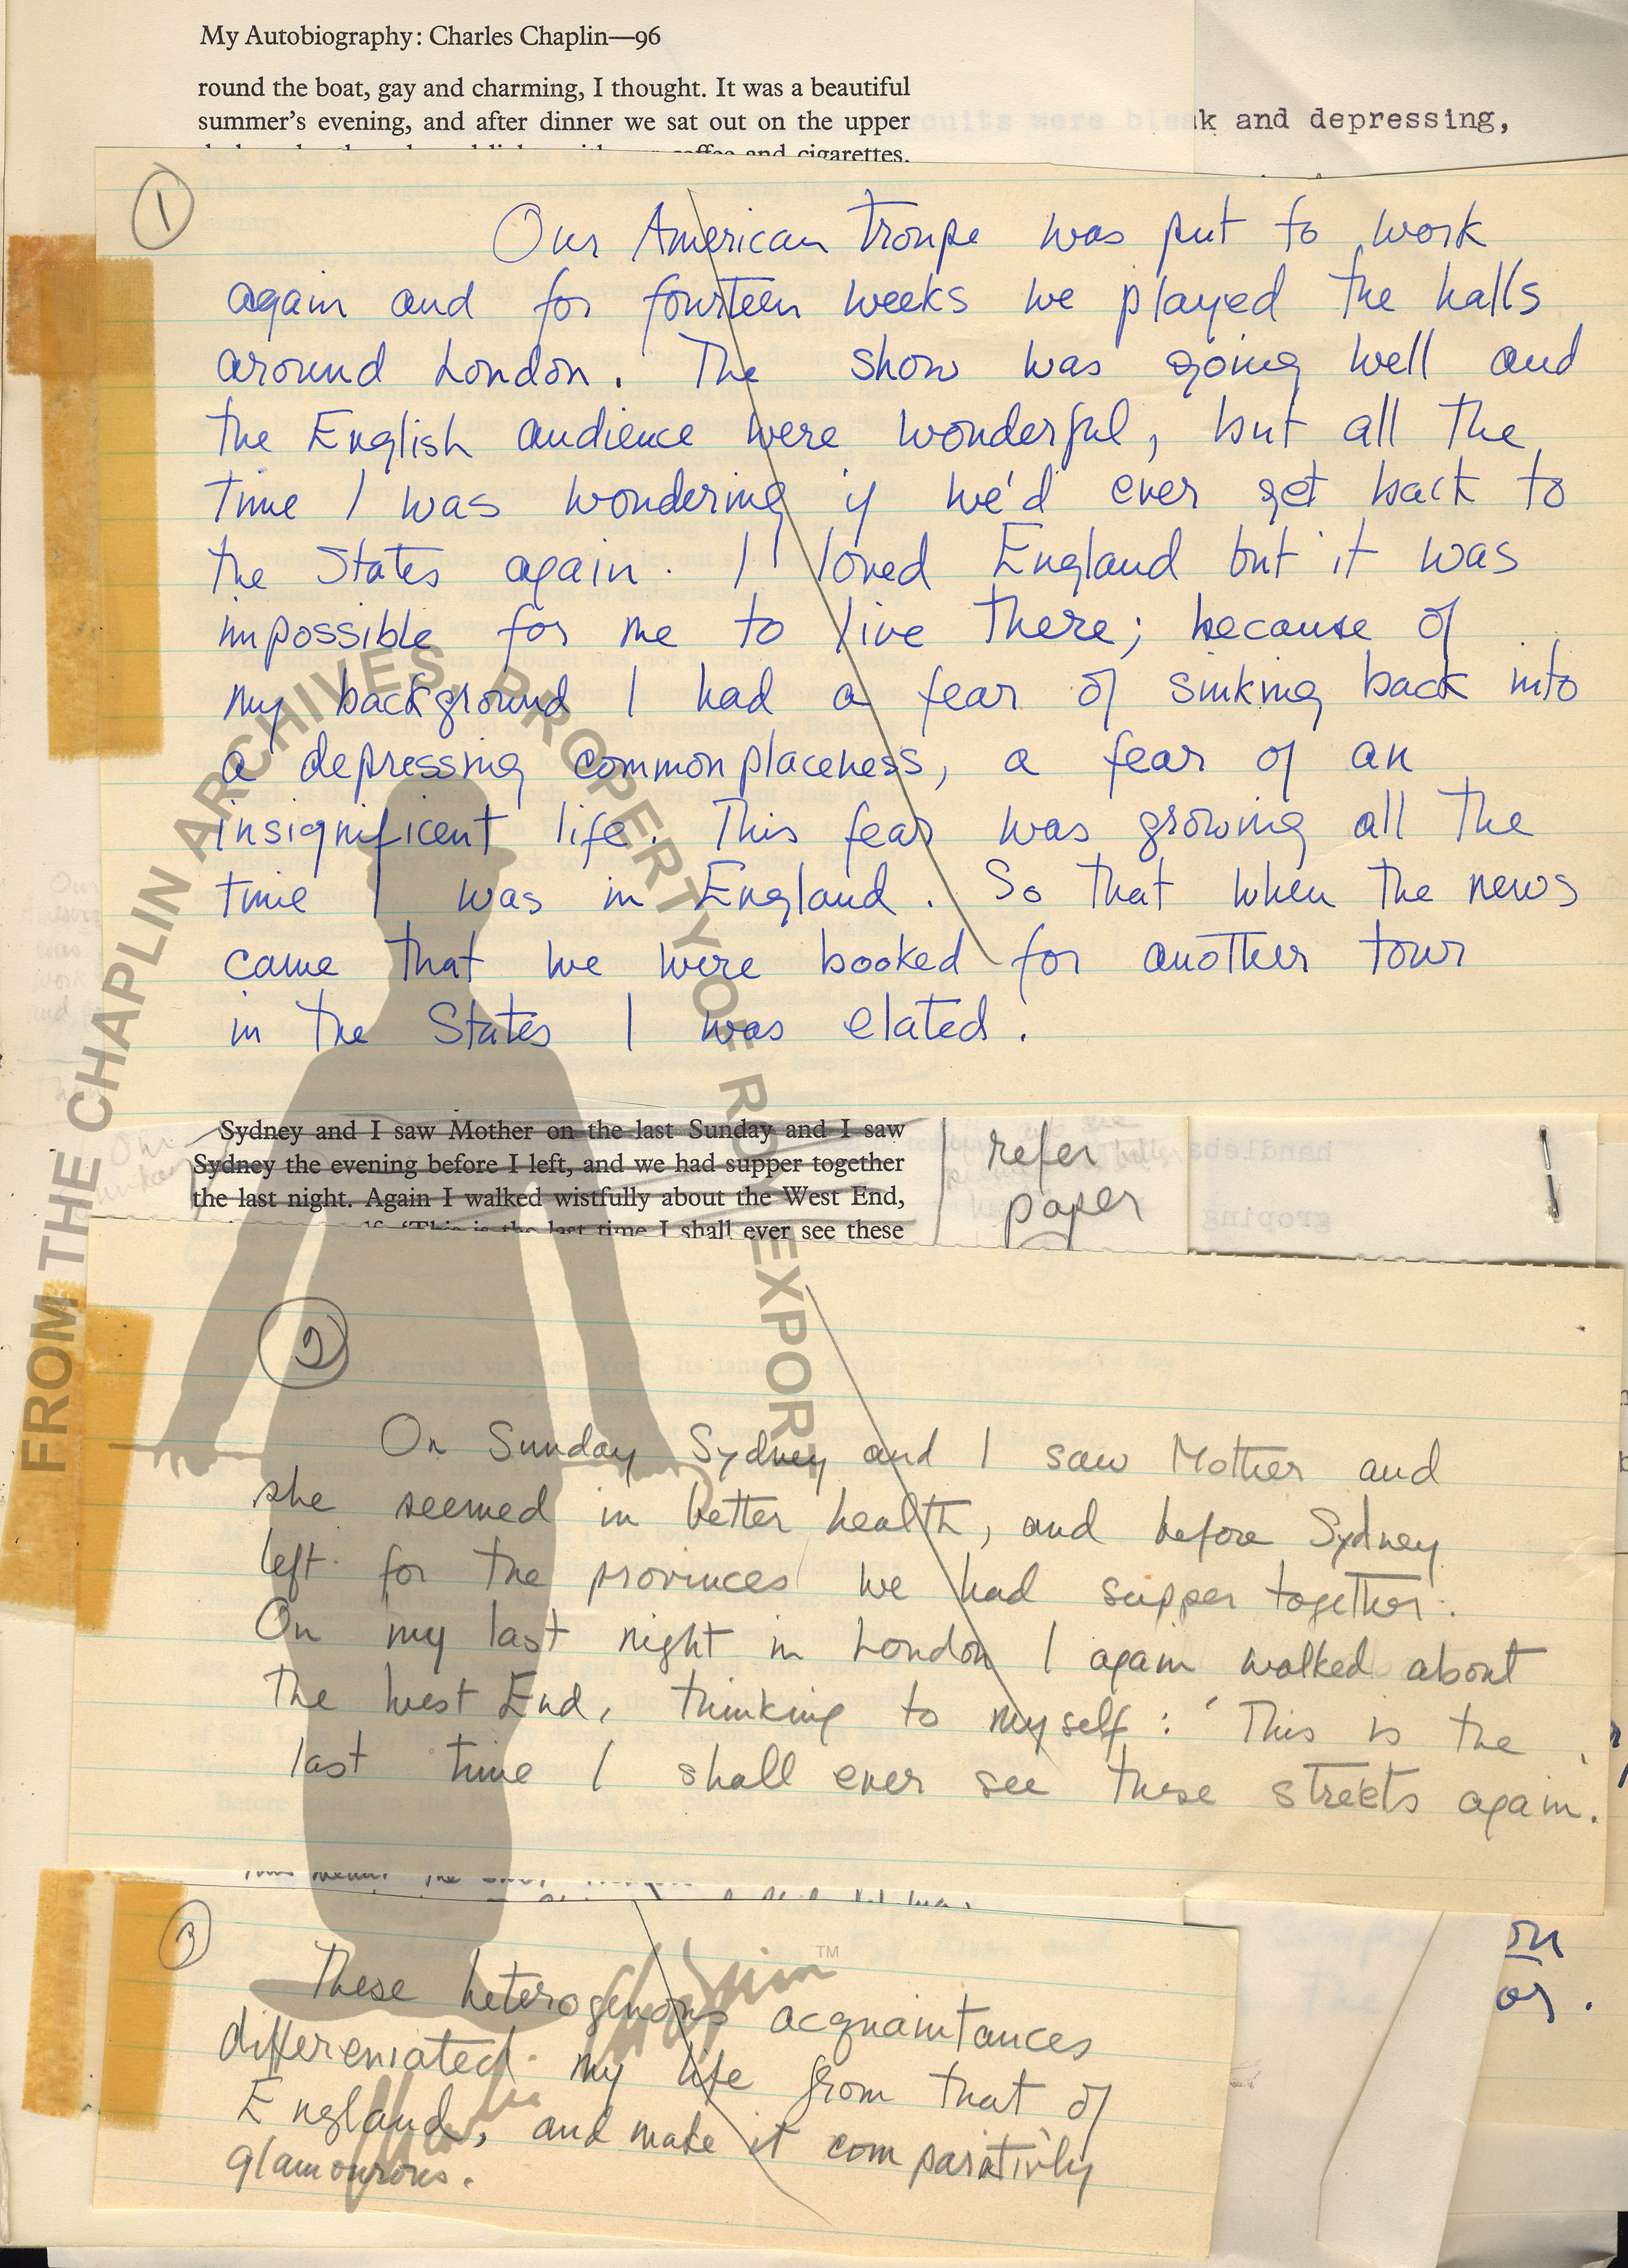 My Autobiography: Charles Chaplin—96
round the boat, gay and charming, I thought. It was a beautiful
summer's evening, and after dinner we sat out on the upper
k and depressing,
coffee and cigarettes.
1
Our American troupe was put to work
again and for fourteen weeks we played the halls
around London. The show was going well and
the English audience were wonderful, but all the
time I was wondering if we'd ever get back to
the States again. I loved England but it was
impossible for me to live there; because of
my background I had a fear of sinking back into
a depressing commonplaceness, a fear of an
insignificent life. This fear was growing all the
time I was in England. So that when the news
came that we were booked for another tour
in the States I was elated.
Sydney and I saw Mother on the last Sunday and I saw
Sydney the evening before I left, and we had supper together
the last night. Again I walked wistfully about the West End,
'This is the last time I shall ever see these
refer
paper
handleba
groping
2
On Sunday Sydney and I saw Mother and
she seemed in better health, and before Sydney
left for the provinces we had supper together.
On my last night in London I again walked about
the West End, thinking to myself: 'This is the
last time I shall ever see these streets again.
3
These heterogenous acquaintances
differeniated my life from that of
England, and make it comparitivly
glamourous.
on
or.
FROM THE CHAPLIN ARCHIVES, PROPERTY OF ROY EXPORT
Charlie Chaplin™